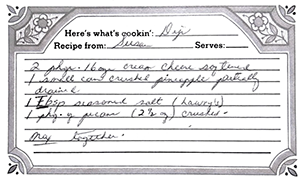 Here's what's cookin': Dip
Recipe from: Susan Serves:
2 phgr. 16 oz cream cheese softened
1 small can crushed pineapple partially
drained
1 Tbsp seasoned salt (Lawry's)
1 phg. pecans (2 ½ oz) crushed.
together.